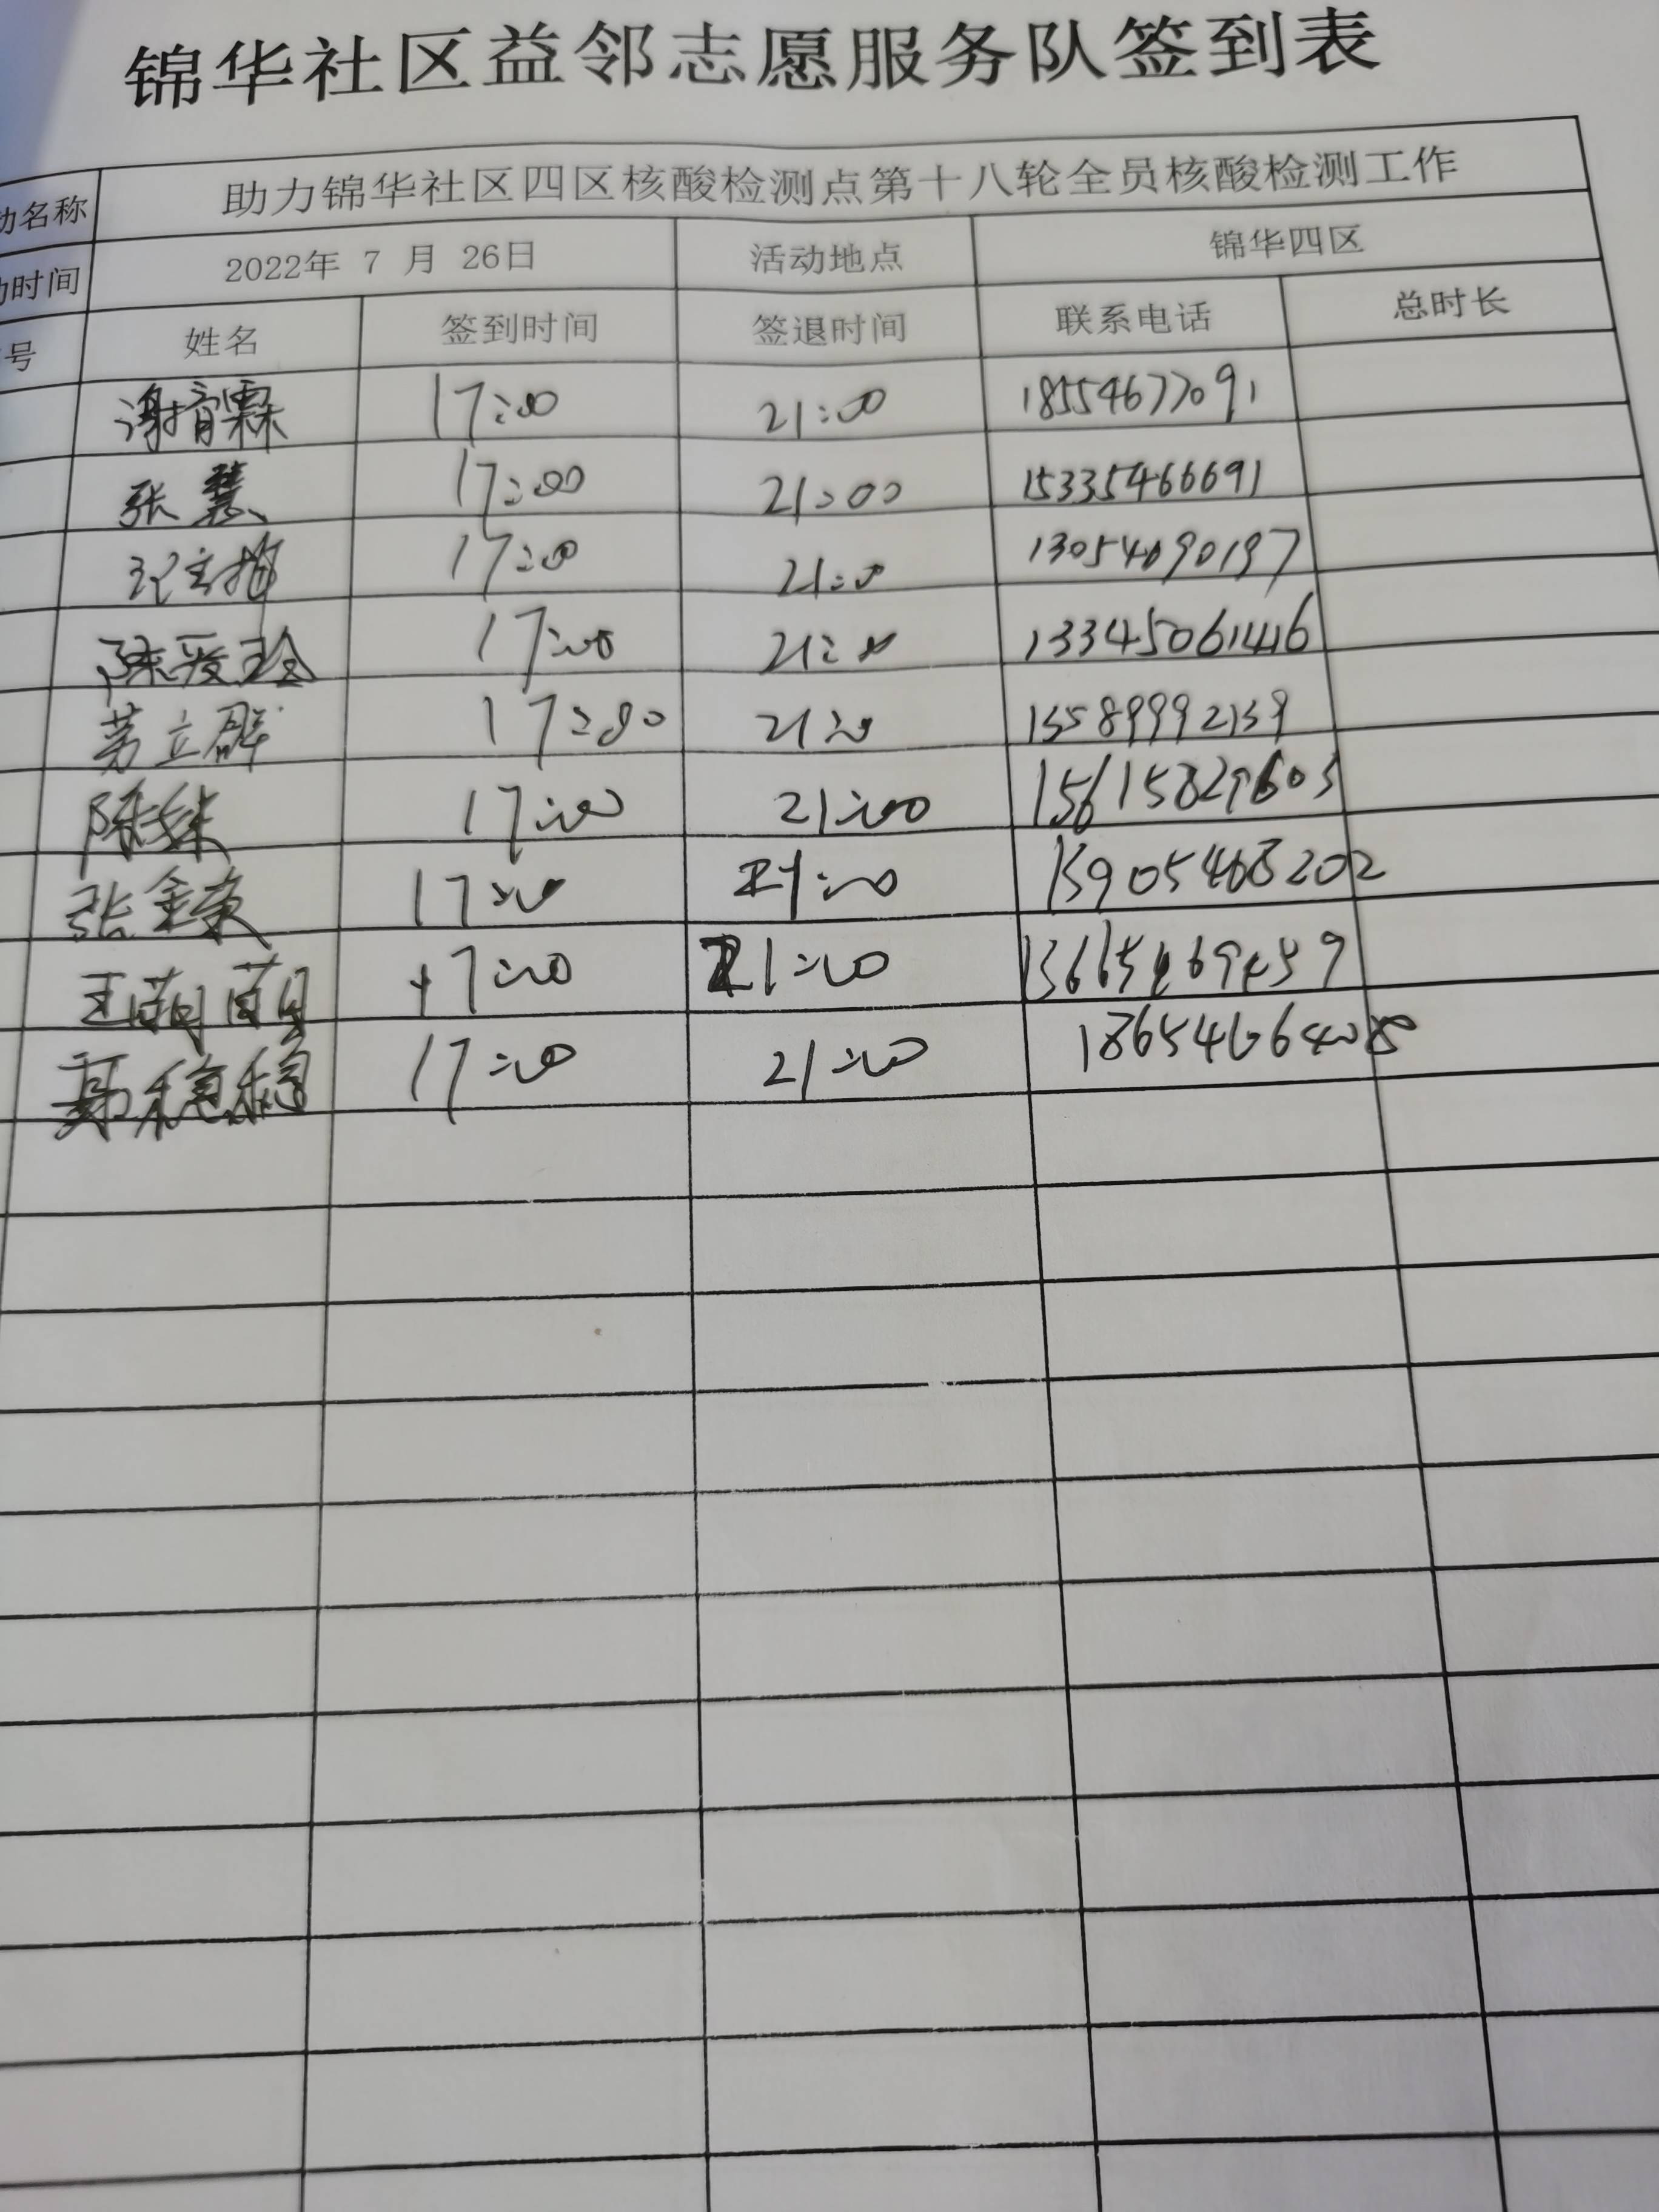 锦华社区益邻志愿服务队签到表
动名称 助力锦华社区四区核酸检测点第十八轮全员核酸检测工作
动时间 2022年 7 月 26日 活动地点 锦华四区
号 姓名 签到时间 签退时间 联系电话 总时长
17:00 21:00 18554677091
张慧 17:00 21:00 15335466691
17:00 21:00 13054090197
陈爱玲 17:00 21:00 13345061416
立群 17:00 21:00 15589992139
陈姝 17:00 21:00 15615829603
张金荣 17:00 21:00 15905468202
王萌萌 17:00 21:00
郭稳稳 17:00 21:00